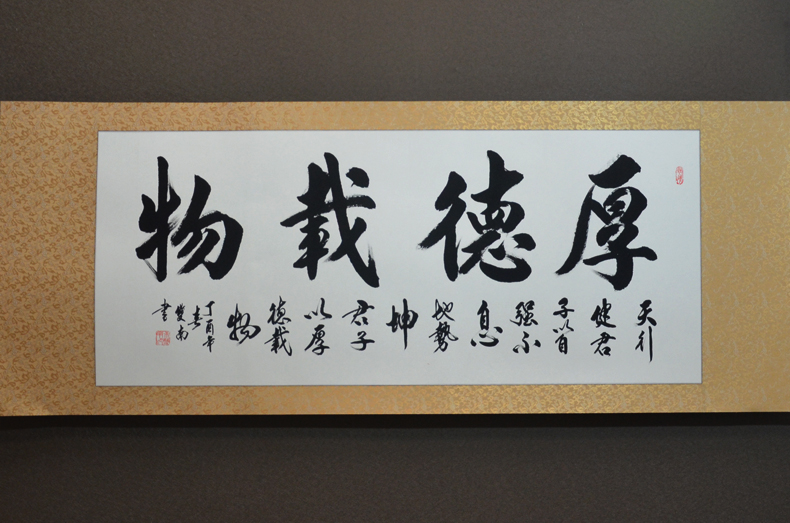 厚德載物
天行
健君
子以自
强不
息
地勢
坤
君子
以厚
德載
物
丁酉年
春
雙南
書